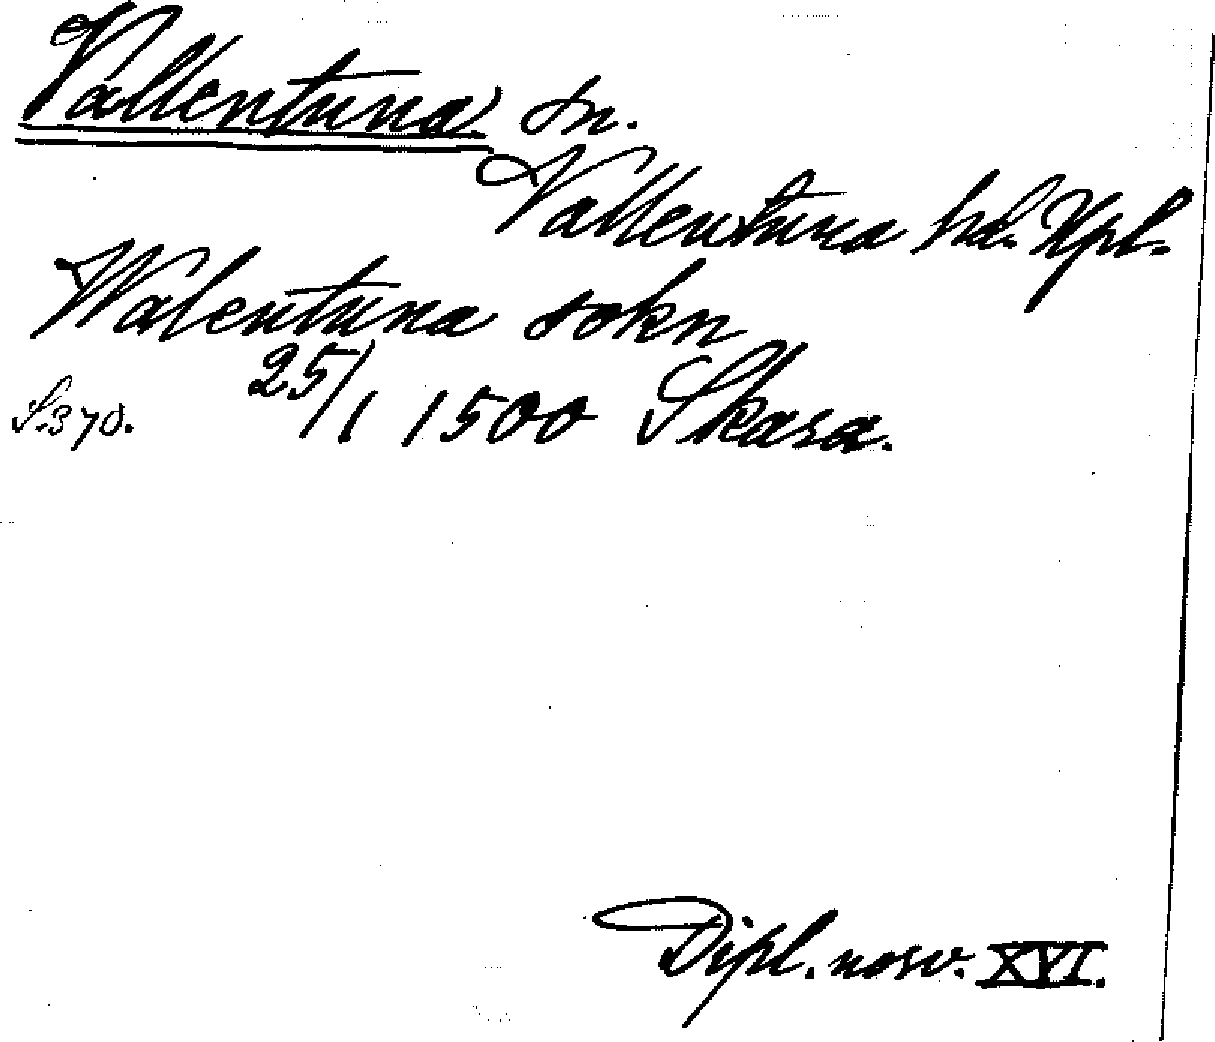 Vallentuna sn.
Vallentuna hd. Upl.
Walentuna sokn
25/1 1500 Skara.
S. 370.
Dipl. norv. XVI.